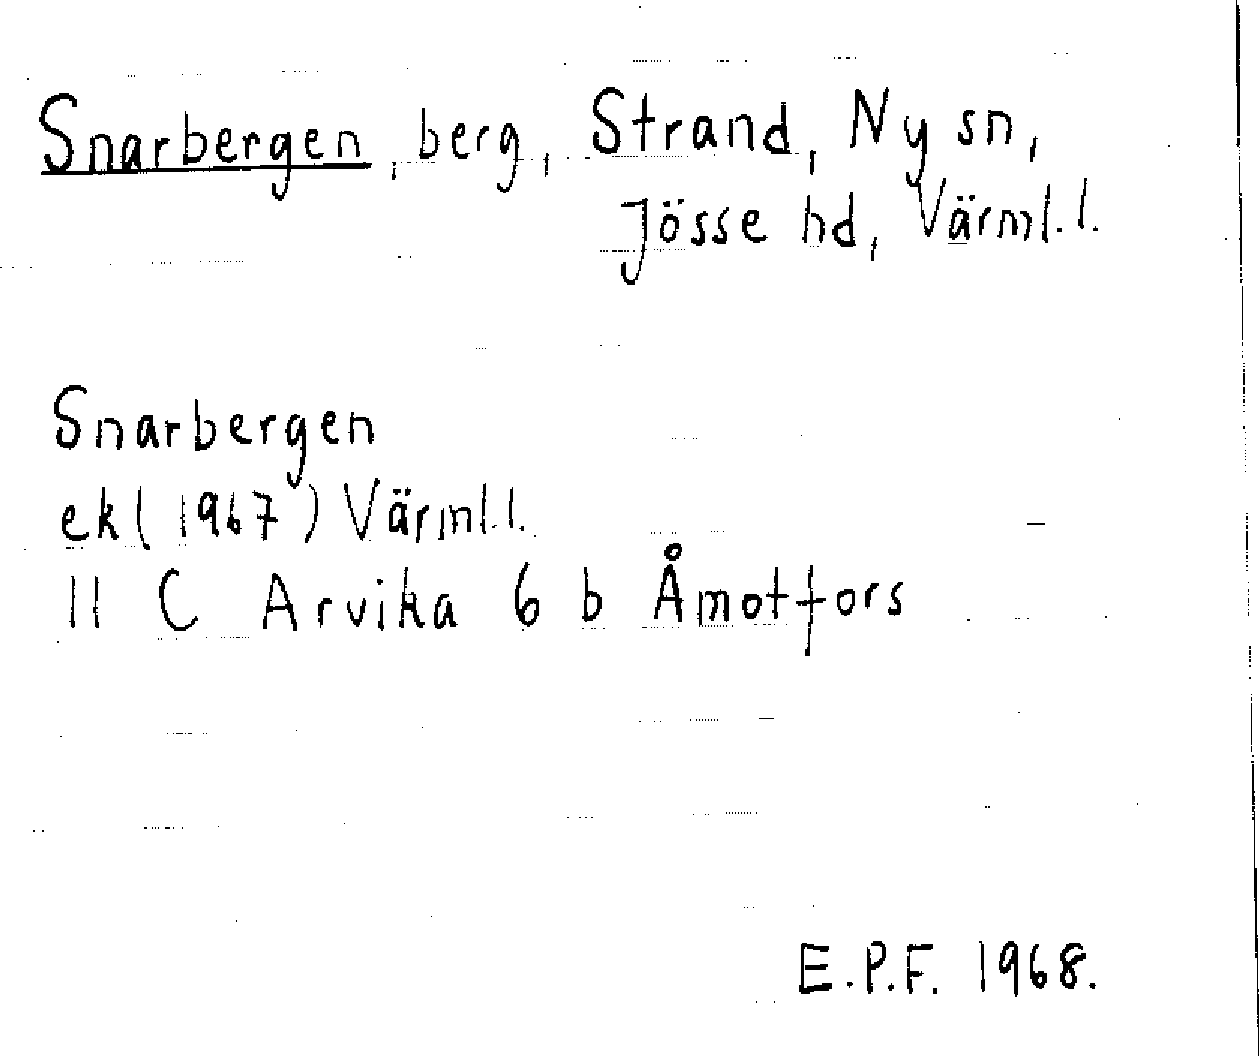 Snarbergen, berg, Strand, Ny sn,
Jösse hd, Värml.l.
Snarbergen
ek (1967) Värml.l.
11 C Arvika 6 b Åmotfors
E.P.F. 1968.